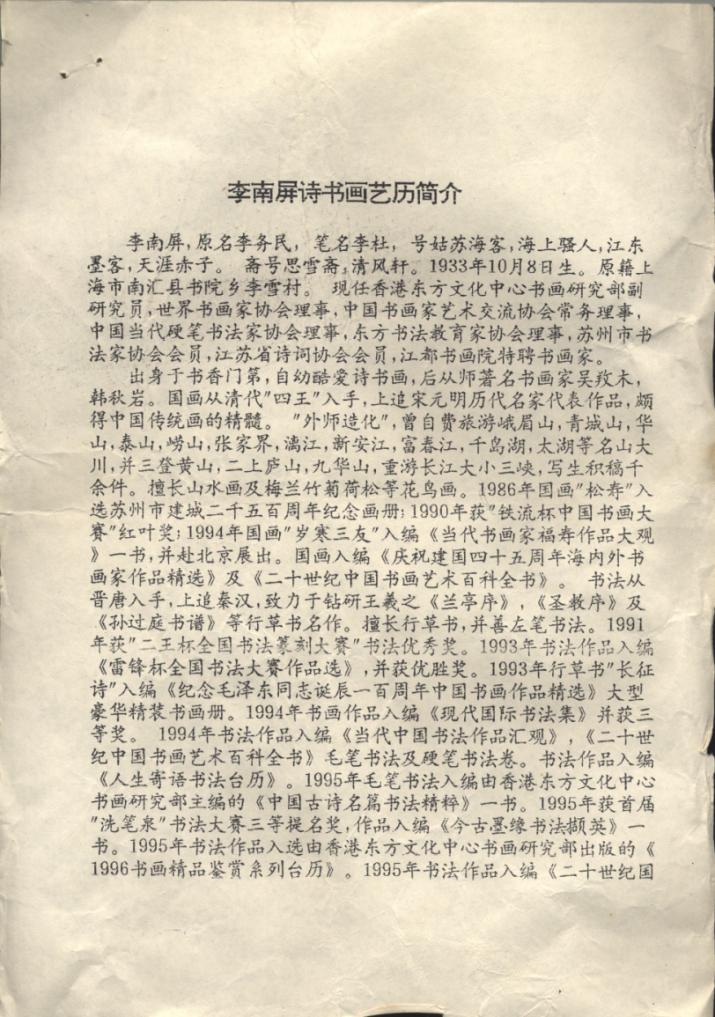 李南屏诗书画艺历简介
李南屏,原名李务民, 笔名李杜, 号姑苏海客,海上骚人,江东
墨客,天涯赤子。 斋号思雪斋,清风轩。1933年10月8日生。原籍上
海市南汇县书院乡李雪村。 现任香港东方文化中心书画研究部副
研究员,世界书画家协会理事,中国书画家艺术交流协会常务理事,
中国当代硬笔书法家协会理事,东方书法教育家协会理事,苏州市书
法家协会会员,江苏省诗词协会会员,江都书画院特聘书画家。
出身于书香门第,自幼酷爱诗书画,后从师著名书画家吴敉木,
韩秋岩。国画从清代"四王"入手,上追宋元明历代名家代表作品,颇
得中国传统画的精髓。 "外师造化",曾自费旅游峨眉山,青城山,华
山,泰山,崂山,张家界,漓江,新安江,富春江,千岛湖,太湖等名山大
川,并三登黄山,二上庐山,九华山,重游长江大小三峡,写生积稿千
余件。擅长山水画及梅兰竹菊荷松等花鸟画。1986年国画"松寿"入
选苏州市建城二千五百周年纪念画册;1990年获"铁流杯中国书画大
赛"红叶奖;1994年国画"岁寒三友"入编《当代书画家福寿作品大观
》一书,并赴北京展出。国画入编《庆祝建国四十五周年海内外书
画家作品精选》及《二十世纪中国书画艺术百科全书》。 书法从
晋唐入手,上追秦汉,致力于钻研王羲之《兰亭序》,《圣教序》及
《孙过庭书谱》等行草书名作。擅长行草书,并善左笔书法。1991
年获"二王杯全国书法篆刻大赛"书法优秀奖。1993年书法作品入编
《雷锋杯全国书法大赛作品选》,并获优胜奖。1993年行草书"长征
诗"入编《纪念毛泽东同志诞辰一百周年中国书画作品精选》大型
豪华精装书画册。1994年书画作品入编《现代国际书法集》并获三
等奖。 1994年书法作品入编《当代中国书法作品汇观》,《二十世
纪中国书画艺术百科全书》毛笔书法及硬笔书法卷。书法作品入编
《人生寄语书法台历》。1995年毛笔书法入编由香港东方文化中心
书画研究部主编的《中国古诗名篇书法精粹》一书。1995年获首届
"洗笔泉"书法大赛三等提名奖,作品入编《今古墨缘书法撷英》一
书。1995年书法作品入选由香港东方文化中心书画研究部出版的《
1996书画精品鉴赏系列台历》。1995年书法作品入编《二十世纪国